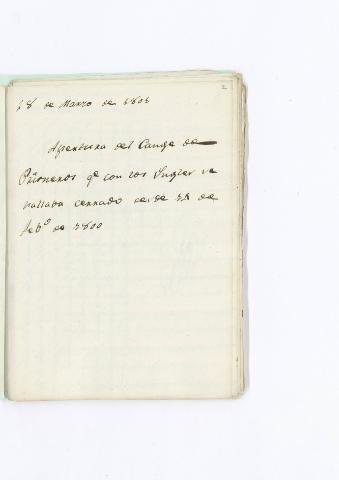 2
18 de Marzo de 1801
Apertura del Cange de
Prisioneros qe con los Ingles se
hallaba cerrado desde de
Febo de 1800